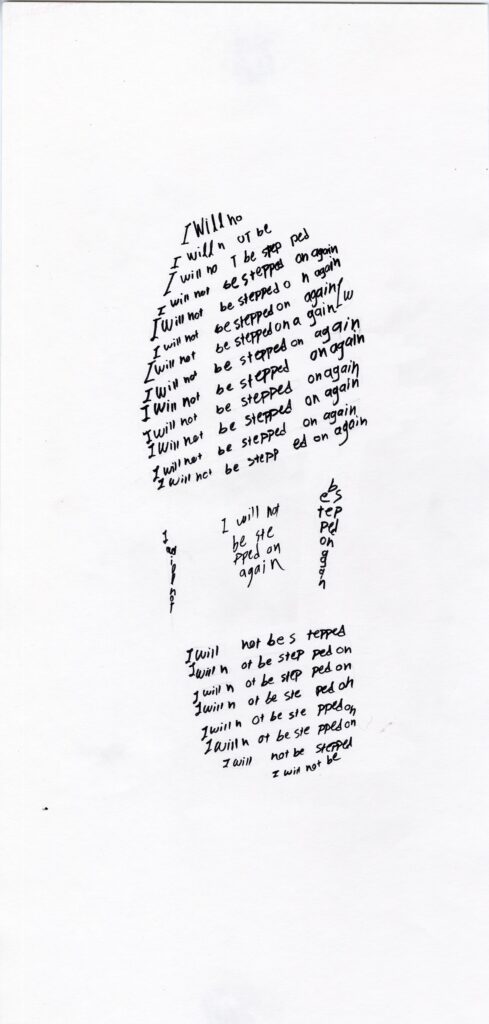 I Will no
I will n OT be
I will no T be step ped
I will not be stepped on again
I Will not be stepped o n again
I will not be stepped on again I w
I will not be stepped on a gain
I will not be stepped on again
I Will not be stepped on again
I will not be stepped on again
I Will not be stepped on again
I will not be stepped on again
I will not be stepp ed on again
I will not
I will not
be ste
pped on
again
bs
e
tep
ped
on
again
I will not be s tepped
I will n ot be step ped on
I will n ot be step ped on
I will n ot be ste ped on
I will n ot be ste pped on
I will n ot be ste pped on
I will not be stepped
I will not be